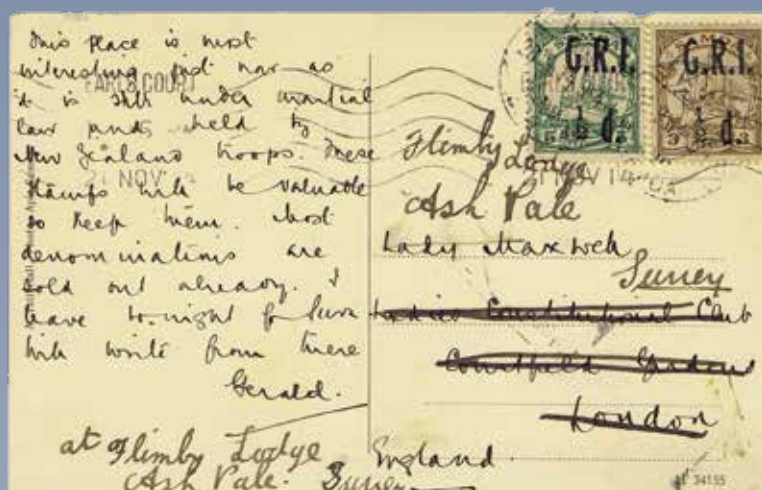 This place is most
interesting just now as
it is still under martial
law and held by
New Zealand troops. These
stamps will be valuable
so keep them. Most
denominations are
sold out already. I
leave to-night for Suva
Will write from there
Gerald.
at Flimby Lodge
Ash Vale. Surrey
EARL'S COURT
21 NOV
G.R.I.
½ d.
5
G.R.I.
½ d.
3 3
NOV 14
Flimby Lodge
Ash Vale
Lady Maxwell
Surrey
Ladies Constitutional Club
Courtfield Gardens
London
England
34155